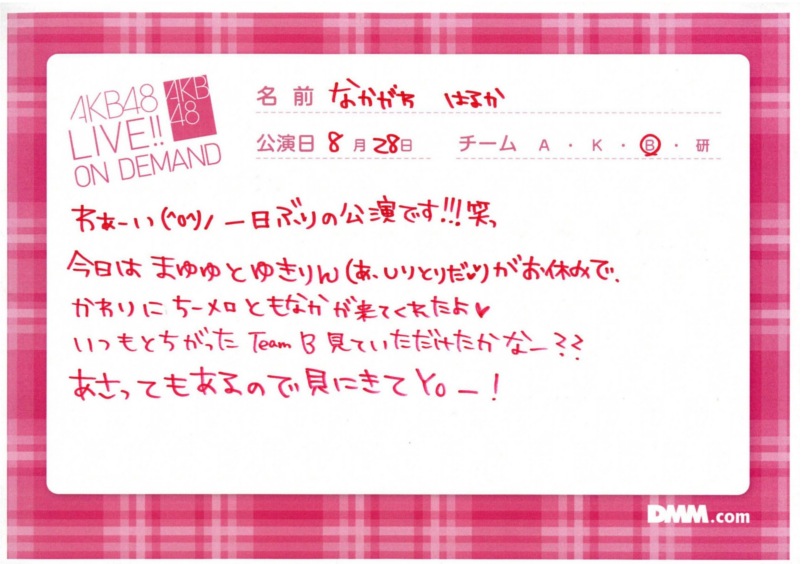 AKB48
LIVE!!
ON DEMAND
AKB
48
名前 なかがわ はるか
公演日 8月28日 チーム A・K・B・研
わぁーい(^o^)ノ 一日ぶりの公演です!!!笑っ
今日はまゆゆとゆきりん(あ、しりとりだ♥)がお休みで、
かわりにちーメロともなかが来てくれたよ♥
いつもとちがったTeam B見ていただけたかなー??
あさってもあるので見にきてYoー!
DMM.com